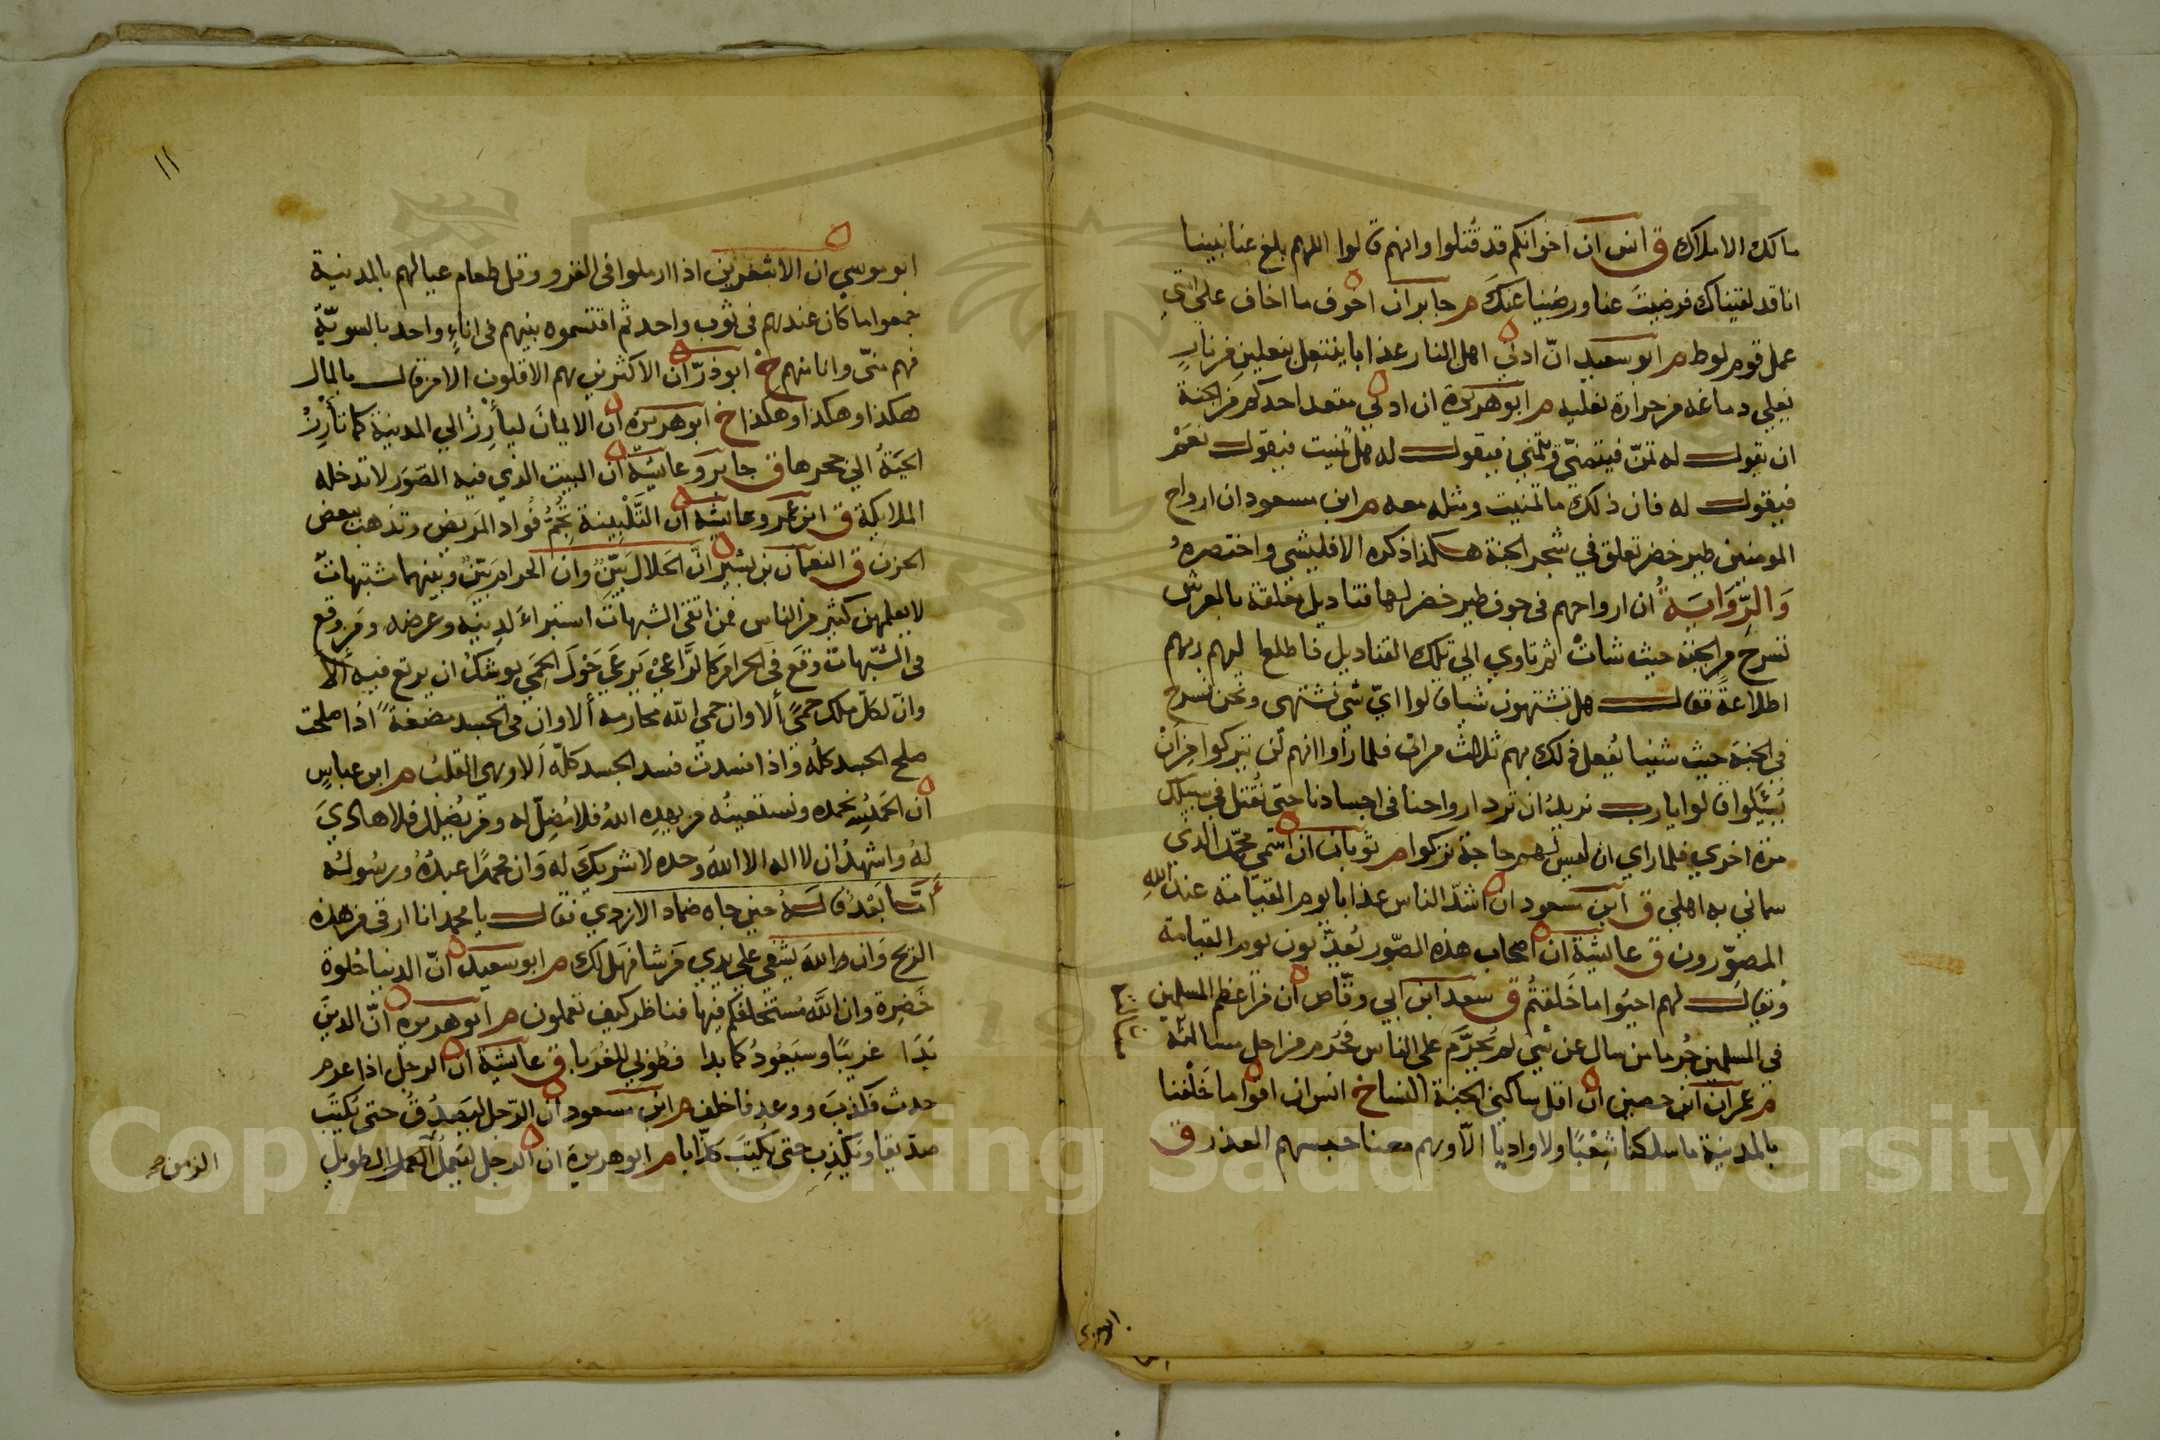 مالك الاملاك ق انس ان اخوانكم قد قتلوا وانهم قالوا اللهم بلغ عنا نبينا
انا قد لقيناك فرضيت عنا ورضينا عنك م جابر ان اخوف ما اخاف على امتي
عمل قوم لوط م ابو سعيد انّ ادني اهل النار عذابا ينتعل بنعلين من نارٍ
يغلي دماغه من حرارة نعليه م ابو هريرة ان ادني مقعد احدكم من الجنة
ان يقول له تمنّ فيتمنّي ويتمني فيقول له هل تمنيت فيقول نعم
فيقول له فان ذلك ما تمنيت ومثله معه م ابن مسعود ان ارواح
المومنين طير خضر تعلق في شجر الجنة هكذا ذكره الاقليشي واختصره
وَالرِّوَايَةُ ان ارواحهم في جوف طير خضر لها قناديل معلقة بالعرش
تسرح من الجنة حيث شات ثم تاوي الي تلك القناديل فاطلع اليهم ربهم
اطلاعةً فقال هل تشتهون شيا قالوا ايّ شي نشتهى ونحن نسرح
في الجنة حيث شينا يُفعل ذلك بهم ثلاث مرات فلما راوا انهم لن يتركوا من ان
يُسْئَلوا قالوا يا رب نريد ان ترد ارواحنا في اجسادنا حتى نُقتل في سبيلك
مرة اخري فلما راي ان ليس لهم حاجة تركوا م ثوبان ان اسمي محمّد الذي
سماني به اهلي ق ابن مسعود ان اشدّ الناس عذابا يوم القيامة عند الله
المصوّرون ق عائشة ان اصحاب هذه الصّور يُعذّبون يوم القيامة
ويقال لهم احيُوا ما خَلقتُم ق سعد ابن ابي وقّاص ان من اعظم المسلمين
في المسلمين جُرما من سال عن شي لم يُحرَّم على الناس فحُرم من اجل مسالته
م عمران ابن حصين ان اقل ساكني الجنة النساء خ انس ان اقواما خَلْفَنا
بالمدينة ما سلكنا شِعْبًا ولا واديًا الّا وهم معنا حبسهم العذر ق
١١
ابو موسي ان الاشعريين اذا ارملوا في الغزو وقل طعام عيالهم بالمدينة
جمعوا ما كان عندهم في ثوب واحد ثم اقتسموه بينهم في اناءٍ واحد بالسويّة
فهم منّى وانا منهم خ ابو ذرّ ان الاكثرين هم الاقلون الا من قال بالمال
هكذا وهكذا وهكذا خ ابو هريرة ان الايمان ليأرِزُ الي المدينة كما تأرِزُ
الحَيّةُ الي جحرها ق جابر وعائشة ان البيت الذي فيه الصّوَر لا تدخله
الملايكة ق ابن عمر وعائشة ان التَّلْبِينة تُجِمُّ فُواد المريض وتذهب ببعض
الحزن ق النعمان بن بشير انّ الحَلالَ بَيّنٌ وان الحرام بَيّنٌ وبينهما مشتبهاتٌ
لا يعلمهن كثير من الناس فمن اتقى الشبهات استبراءَ لِدينِه وعرضه ومن وقع
في الشُّبهات وَقَع في الحرام كَالرَّاعِيْ يَرعَي حَولَ الحِمَي يوشك ان يرتع فيه ألا
وانّ لكلّ ملك حِمًي ألا وان حمي الله محارمه ألا وان في الجسد مضغةً اذا صلحت
صلح الجسد كلُّه واذا فسدت فسد الجسد كلّه ألا وهي القلبُ م ابن عباسٍ
ان الحمدُ للهِ نحمده ونستعينُه من يهدِه اللهُ فلا مُضِلّ له ومن يُضلِل فلا هاديَ
لهُ واشهدُ ان لا اله الا اللهُ وحده لا شريكَ له وان محمدًا عبدُهُ ورسُولُه
أمّا بَعْدُ قاله حين جاه ضماد الازدي فقال يا محمد انا ارقي من هذه
الريح وَان الله يشفي علي يدي مَن شا فهل لك م ابو سعيد انّ الدنيا حُلوة
خَضِرة وان اللّه مُستخلفكم فيها فناظر كيف تعملون م ابو هريرة انّ الدينَ
بَدَا غريبًا وسَيَعُودُ كما بدا فطوبي للغُرَبا ق عائشة ان الرجل اذا غرم
حدث فكذبَ ووعد فاخلف م ابن مسعود ان الرّجل ليَصدُقُ حتى يُكتَبَ
صدّيقا ويكذِب حتى يُكتَبَ كذّابا م ابو هريرة ان الرجل ليَعملُ العمل الطويل
الزمن